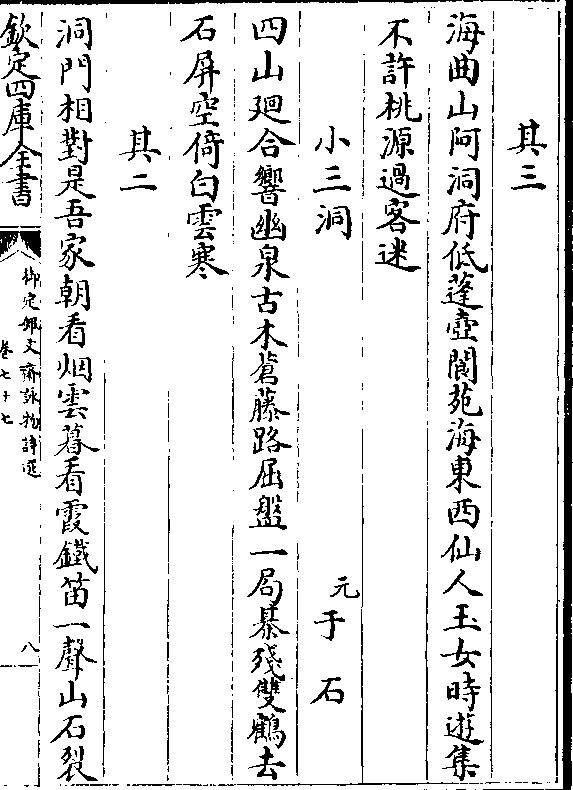 其三
海曲山阿洞府低蓬壺閬苑海東西仙人玉女時遊集
不許桃源過客迷
小三洞
元于石
四山廻合響幽泉古木蒼藤路屈盤一局棊殘雙鶴去
石屏空倚白雲寒
其二
洞門相對是吾家朝看烟雲暮看霞鐵笛一聲山石裂
欽定四庫全書
御定佩文齋詠物詩選
卷七十七
八